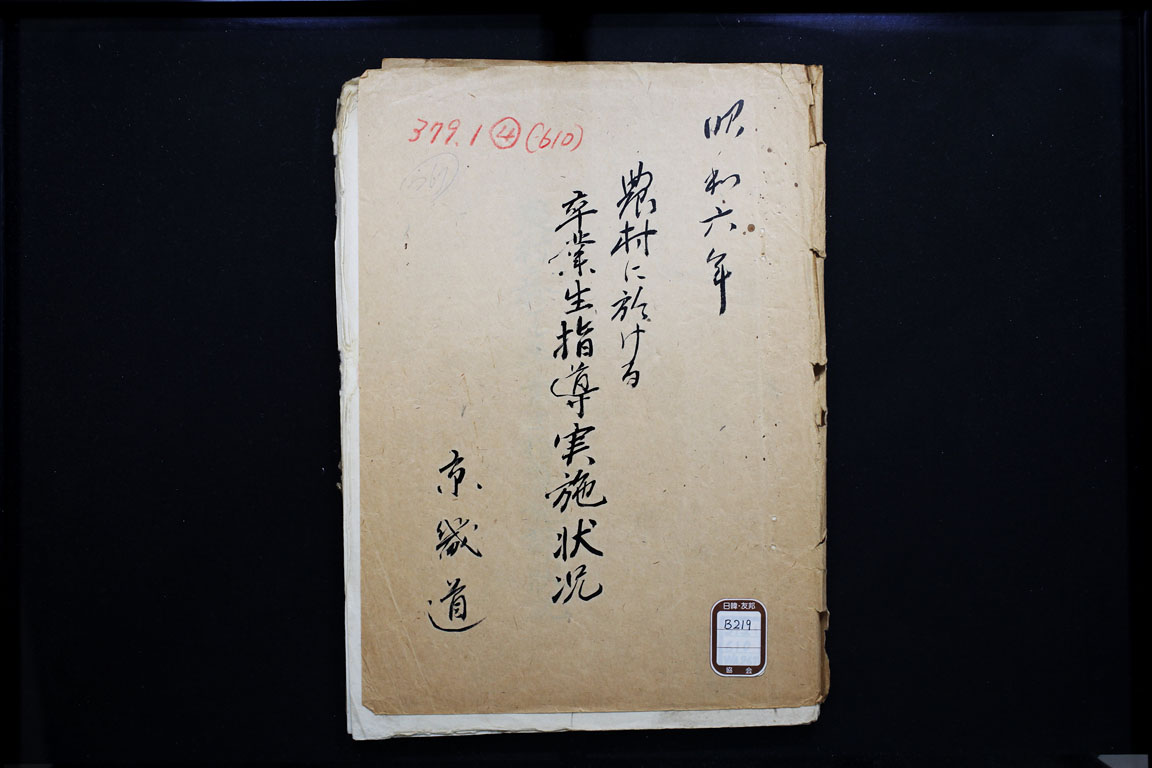 昭和六年
農村に於ける
卒業生指導実施状況
京畿道
379.1④(610)
日韓・友邦
B219
協会